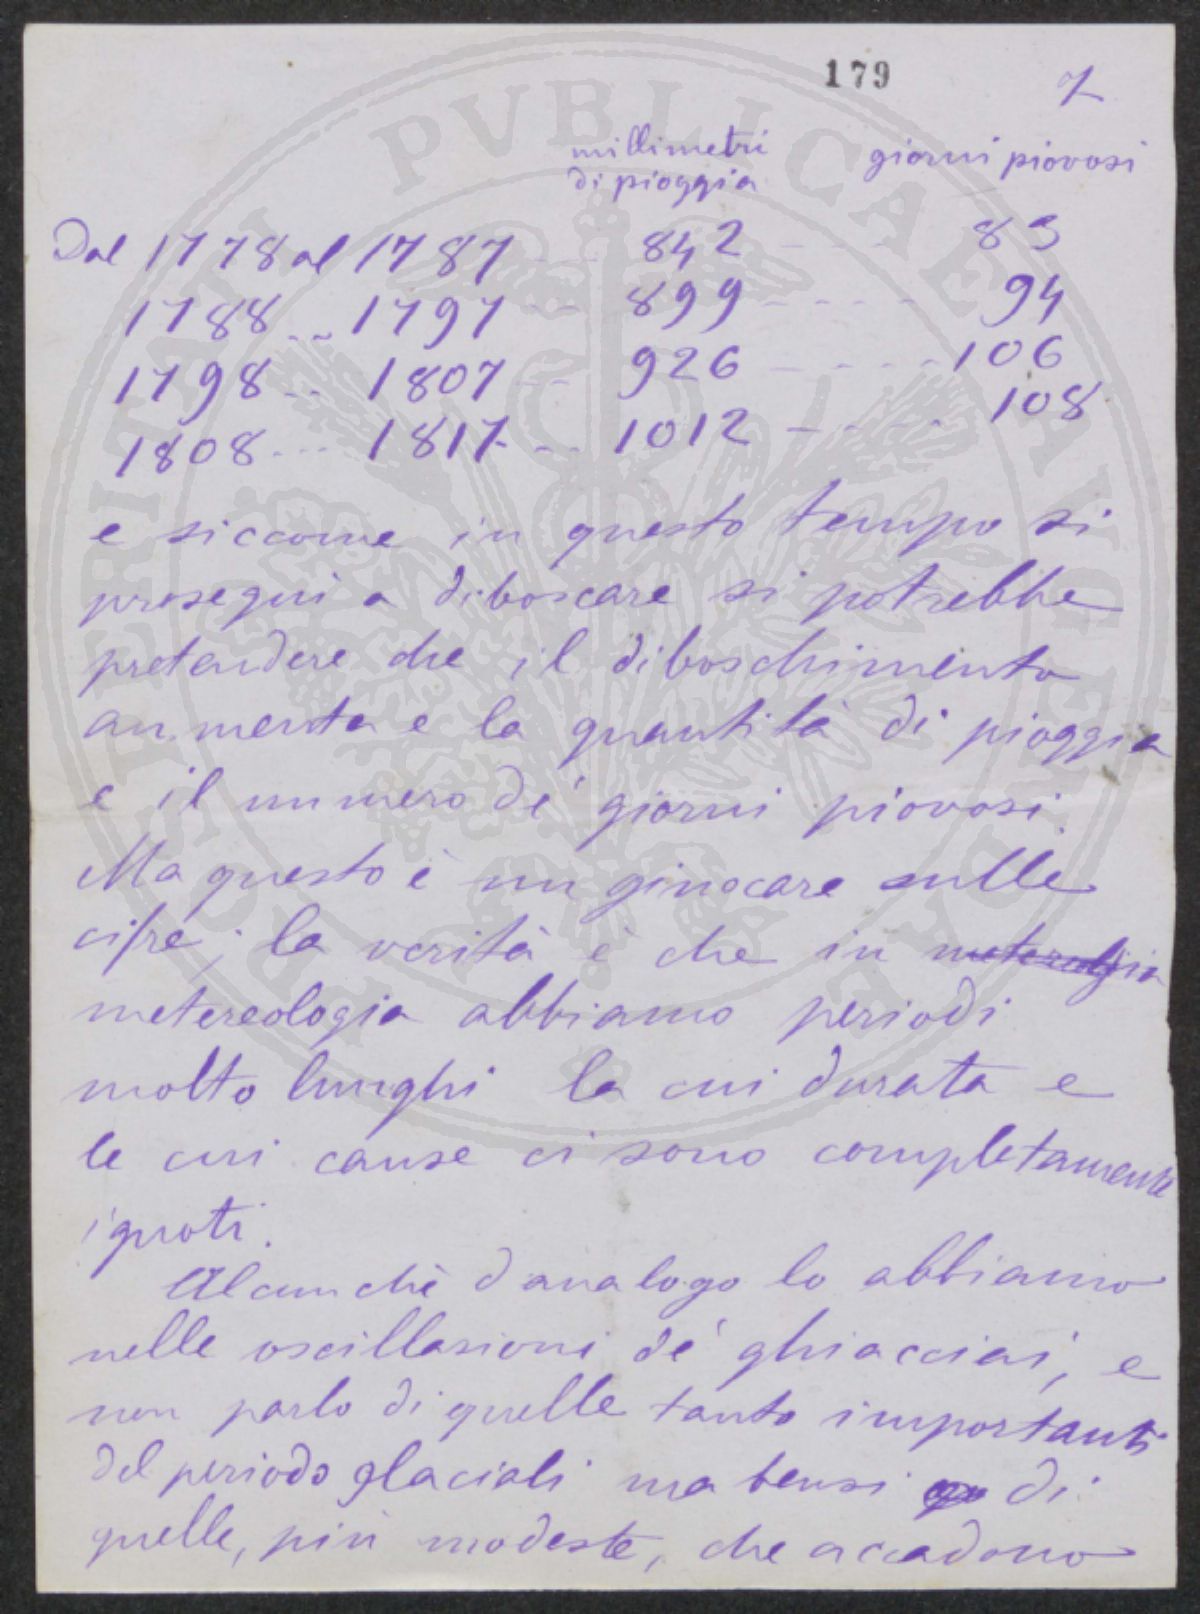 179 7
millimetri giorni piovosi
di pioggia
Dal 1778 al 1787 --- 842 --- 83
1788 -- 1797 -- 899 ---- 94
1798 -- 1807 -- 926 ----- 106
1808 --- 1817 -- 1012 ----- 108
e siccome in questo tempo si
proseguì a diboscare si potrebbe
pretendere che il diboschimento
aumenta e la quantità di pioggia
e il numero de' giorni piovosi.
Ma questo è un ginocare sulle
cifre; la verità è che in metereologia
metereologia abbiamo periodi
molto lunghi la cui durata e
le cui cause ci sono completamente
ignoti.
Alcunchè d'analogo lo abbiamo
nelle oscillasioni de' ghiacciai, e
non parlo di quelle tanto importanti
del periodo glaciali ma bensi di
quelle, più modeste, che accadono